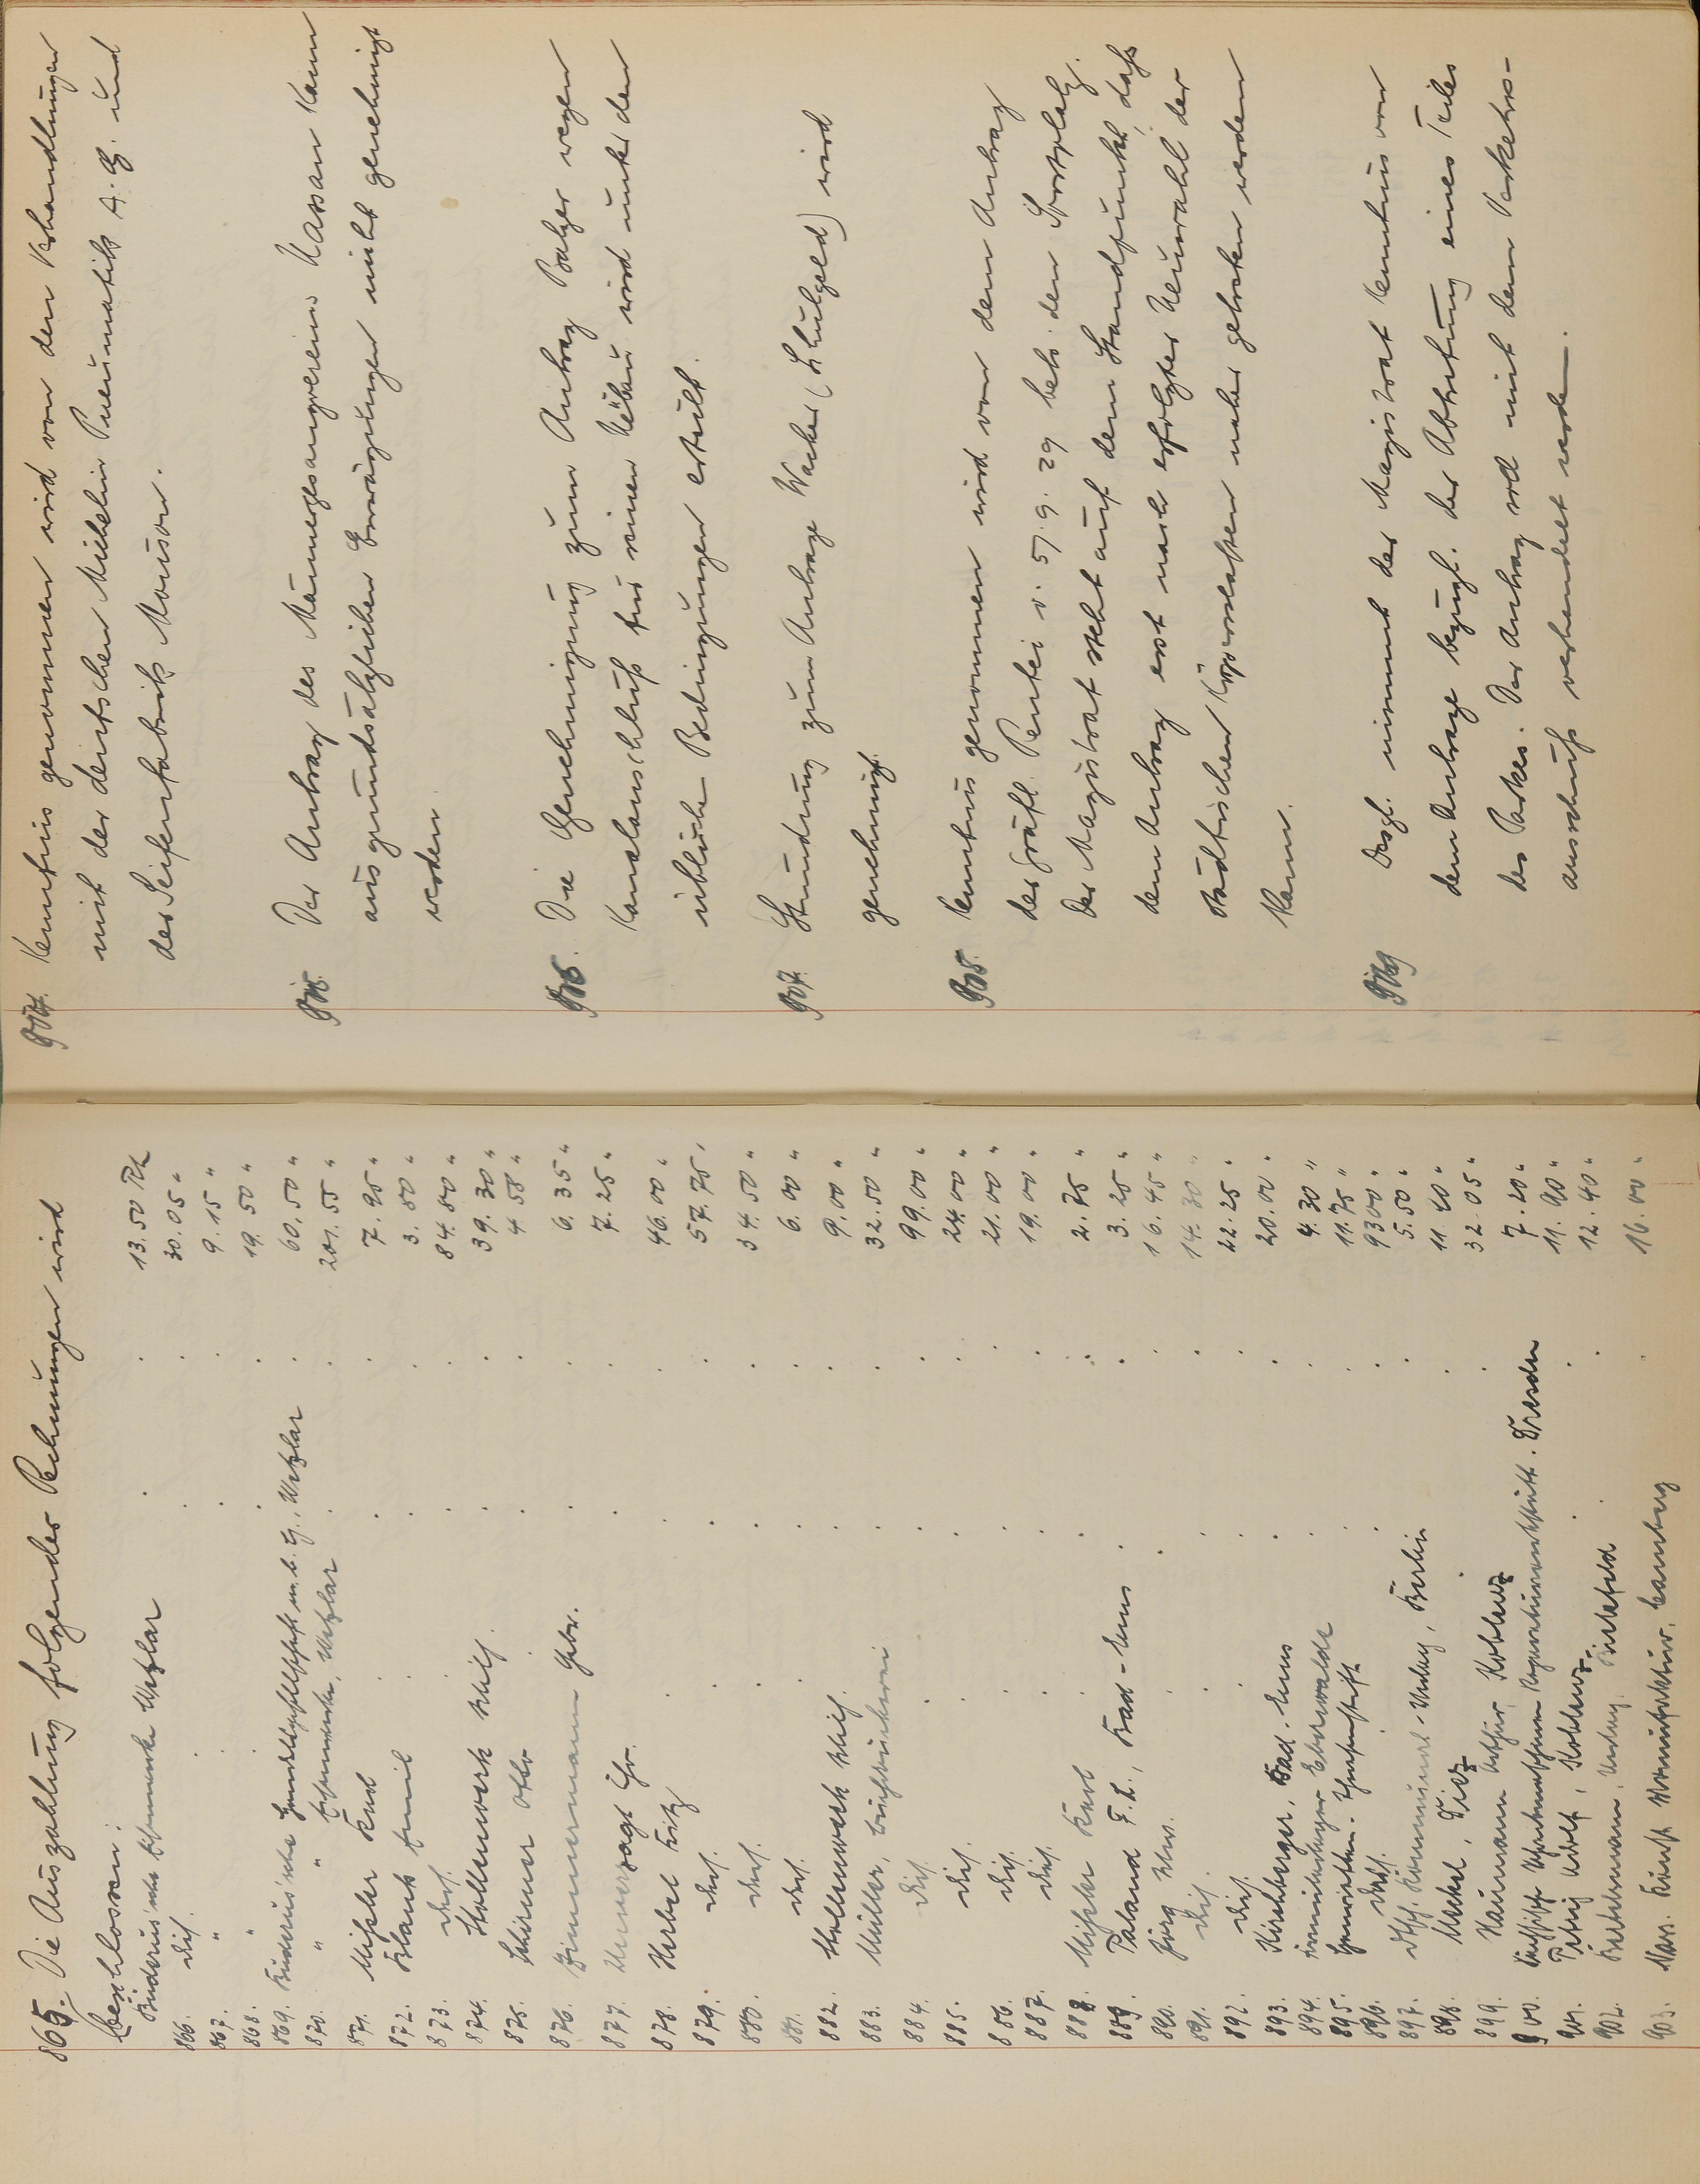 865. Die Auszahlung folgender Rechnungen wird
beschlossen:
Buderus'sche Eisenwerke Wetzlar . . 13.50 RM
866. dies. . . 30.05 "
867. " . . 9.15 "
868. " . . 19.50 "
869. Buderus'sche Handelsgesellschaft m.b.H., Wetzlar . 60.50 "
870. " " Eisenwerke, Wetzlar . . 201.55 "
871. Mißler Karl . . 7.95 "
872. Blank Emil . . 3.80 "
873. ders. . . 84.80 "
874. Stollenwerk Wilh. . . 39.30 "
875. Schirmer Otto . . 4.58 "
876. Zimmermann Gebr. . . 6.35 "
877. Unverzagt Chr. . . 7.25 "
878. Herbel Fritz . . 46.00 "
879. ders. . . 57.75 "
880. ders. . . 34.50 "
881. ders. . . 6.00 "
882. Stollenwerk Wilh. . . 9.00 "
883. Müller, Buchdruckerei . . 32.50 "
884. dies. . . 99.00 "
885. dies. . . 24.00 "
886. dies. . . 21.00 "
887. dies. . . 19.00 "
888. Mißler Karl . . 2.75 "
889. Paland F. L., Bad-Ems . . 3.25 "
890. Jörg Wwe. . . 16.45 "
891. dies. . . 14.30 "
892. dies. . . 22.25 "
893. Kirchberger, Bad-Ems . . 20.00 "
894. Eberswalde . . 4.30 "
895. . . 11.75 "
896. ders. . . 93.00 "
897. Kommunal-Verlag, Berlin . 5.50 "
898. Merkel, Diez . . 11.40 "
899. Naumann Arthur, Koblenz . 32.05 "
900. Dresden 7.20 "
901. Petry Adolf, Koblenz . . 11.90 "
902. Verlag, Bielefeld . . 12.40 "
903. Nass. Camberg . 16.00 "
904. Kenntnis genommen wird von den Verhandlungen
mit der deutschen Michelin Pneumatik A.G. und
der Seifenfabrik Mouson.
905. Der Antrag des Männergesangvereins Nassau kann
aus grundsätzlichen Erwägungen nicht genehmigt
werden.
906. Die Genehmigung zum Antrag Balzer wegen
Kanalanschluß für seinen Neubau wird unter den
üblichen Bedingungen erteilt.
907. Stundung zum Antrage Wacker (Schulgeld) wird
genehmigt.
908. Kenntnis genommen wird von dem Antrag
der Gräfl. Rentei v. 5.9.29 betr. den Sportplatz.
Der Magistrat steht auf dem Standpunkt, daß
dem Antrag erst nach erfolgter Neuwahl der
städtischen Körperschaften näher getreten werden
kann.
909 Desgl. nimmt der Magistrat Kenntnis von
dem Antrage bezügl. der Abtretung eines Teiles
des Parkes. Der Antrag soll mit dem Verkehrs-
ausschuß verhandelt werden.